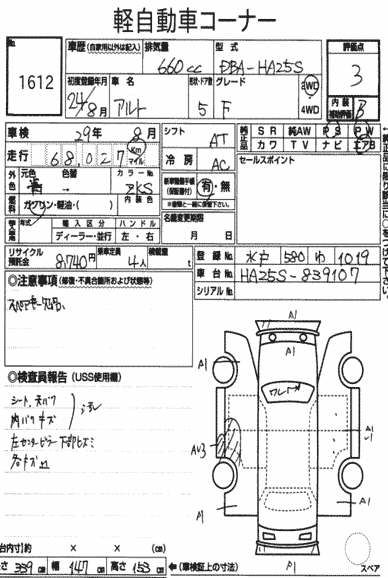 軽自動車コーナー
No. 1612
車歴 (自家用以外は記入) 排気量 660cc 型式 DBA-HA25S
評価点 3
初度登録年月 24年8月 車名 アルト 形状・ドア数 5 グレード F 2WD 4WD
内装 補助評価 B
車検 29年 8月 シフト AT
純正品 SR 純AW PS PW
カワ TV ナビ エアB
走行 68,027 Km マイル 冷房 AC
セールスポイント
外色 元色 色替 カラーNo.
新車整備手帳 (保証書付) 有・無
燃料 ガソリン・軽油・( ) 内装色
年式 輸入区分 ハンドル 名義変更期限
ディーラー・並行 左・右 月 日
リサイクル預託金 8,740円 乗車定員 4人 積載量 t
登録No. 水戸 580 わ 1019
車台No. HA25S-839107
シリアルNo.
◎注意事項 (修復・不具合箇所および状態等)
◎検査員報告 (USS使用欄)
シート、
内ハリキズ
左センターピラー下部ヒズミ
A1 A1 A1
AU3
A1 A1
A1
台内寸)約 × × (cm)
長さ 339cm 幅 147cm 高さ 153cm ←(車検証上の寸法) スペア